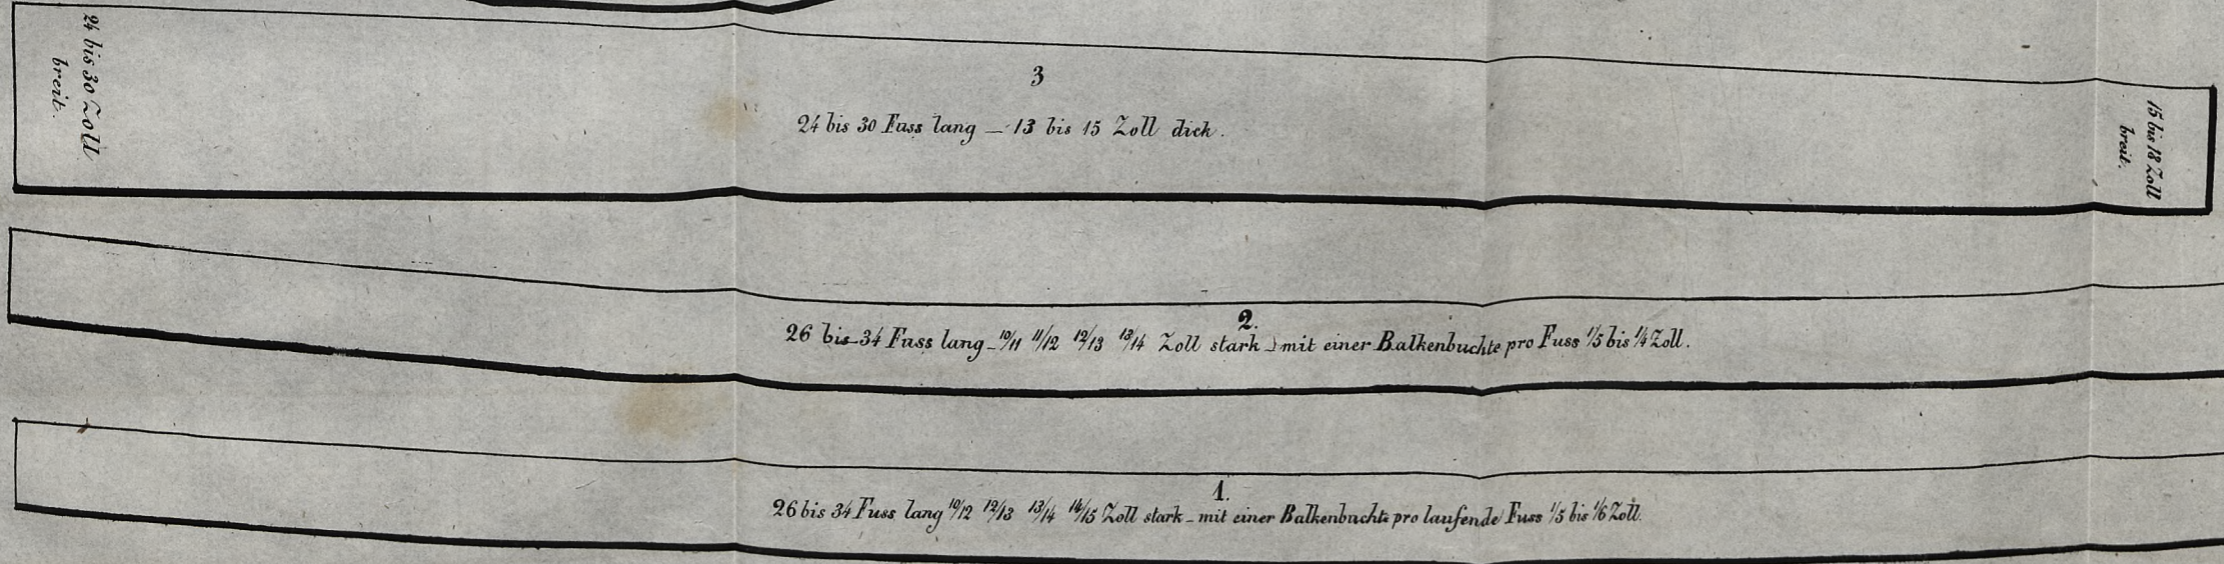 24 bis 30 Zoll
breit.
3
24 bis 30 Fuss lang — 13 bis 15 Zoll dick.
15 bis 18 Zoll
breit.
2.
26 bis 34 Fuss lang - 10/11 11/12 12/13 13/14 Zoll stark - mit einer Balkenbuchte pro Fuss 1/5 bis 1/4 Zoll.
1.
26 bis 34 Fuss lang 10/12 12/13 13/14 14/15 Zoll stark - mit einer Balkenbuchte pro laufende Fuss 1/5 bis 1/6 Zoll.